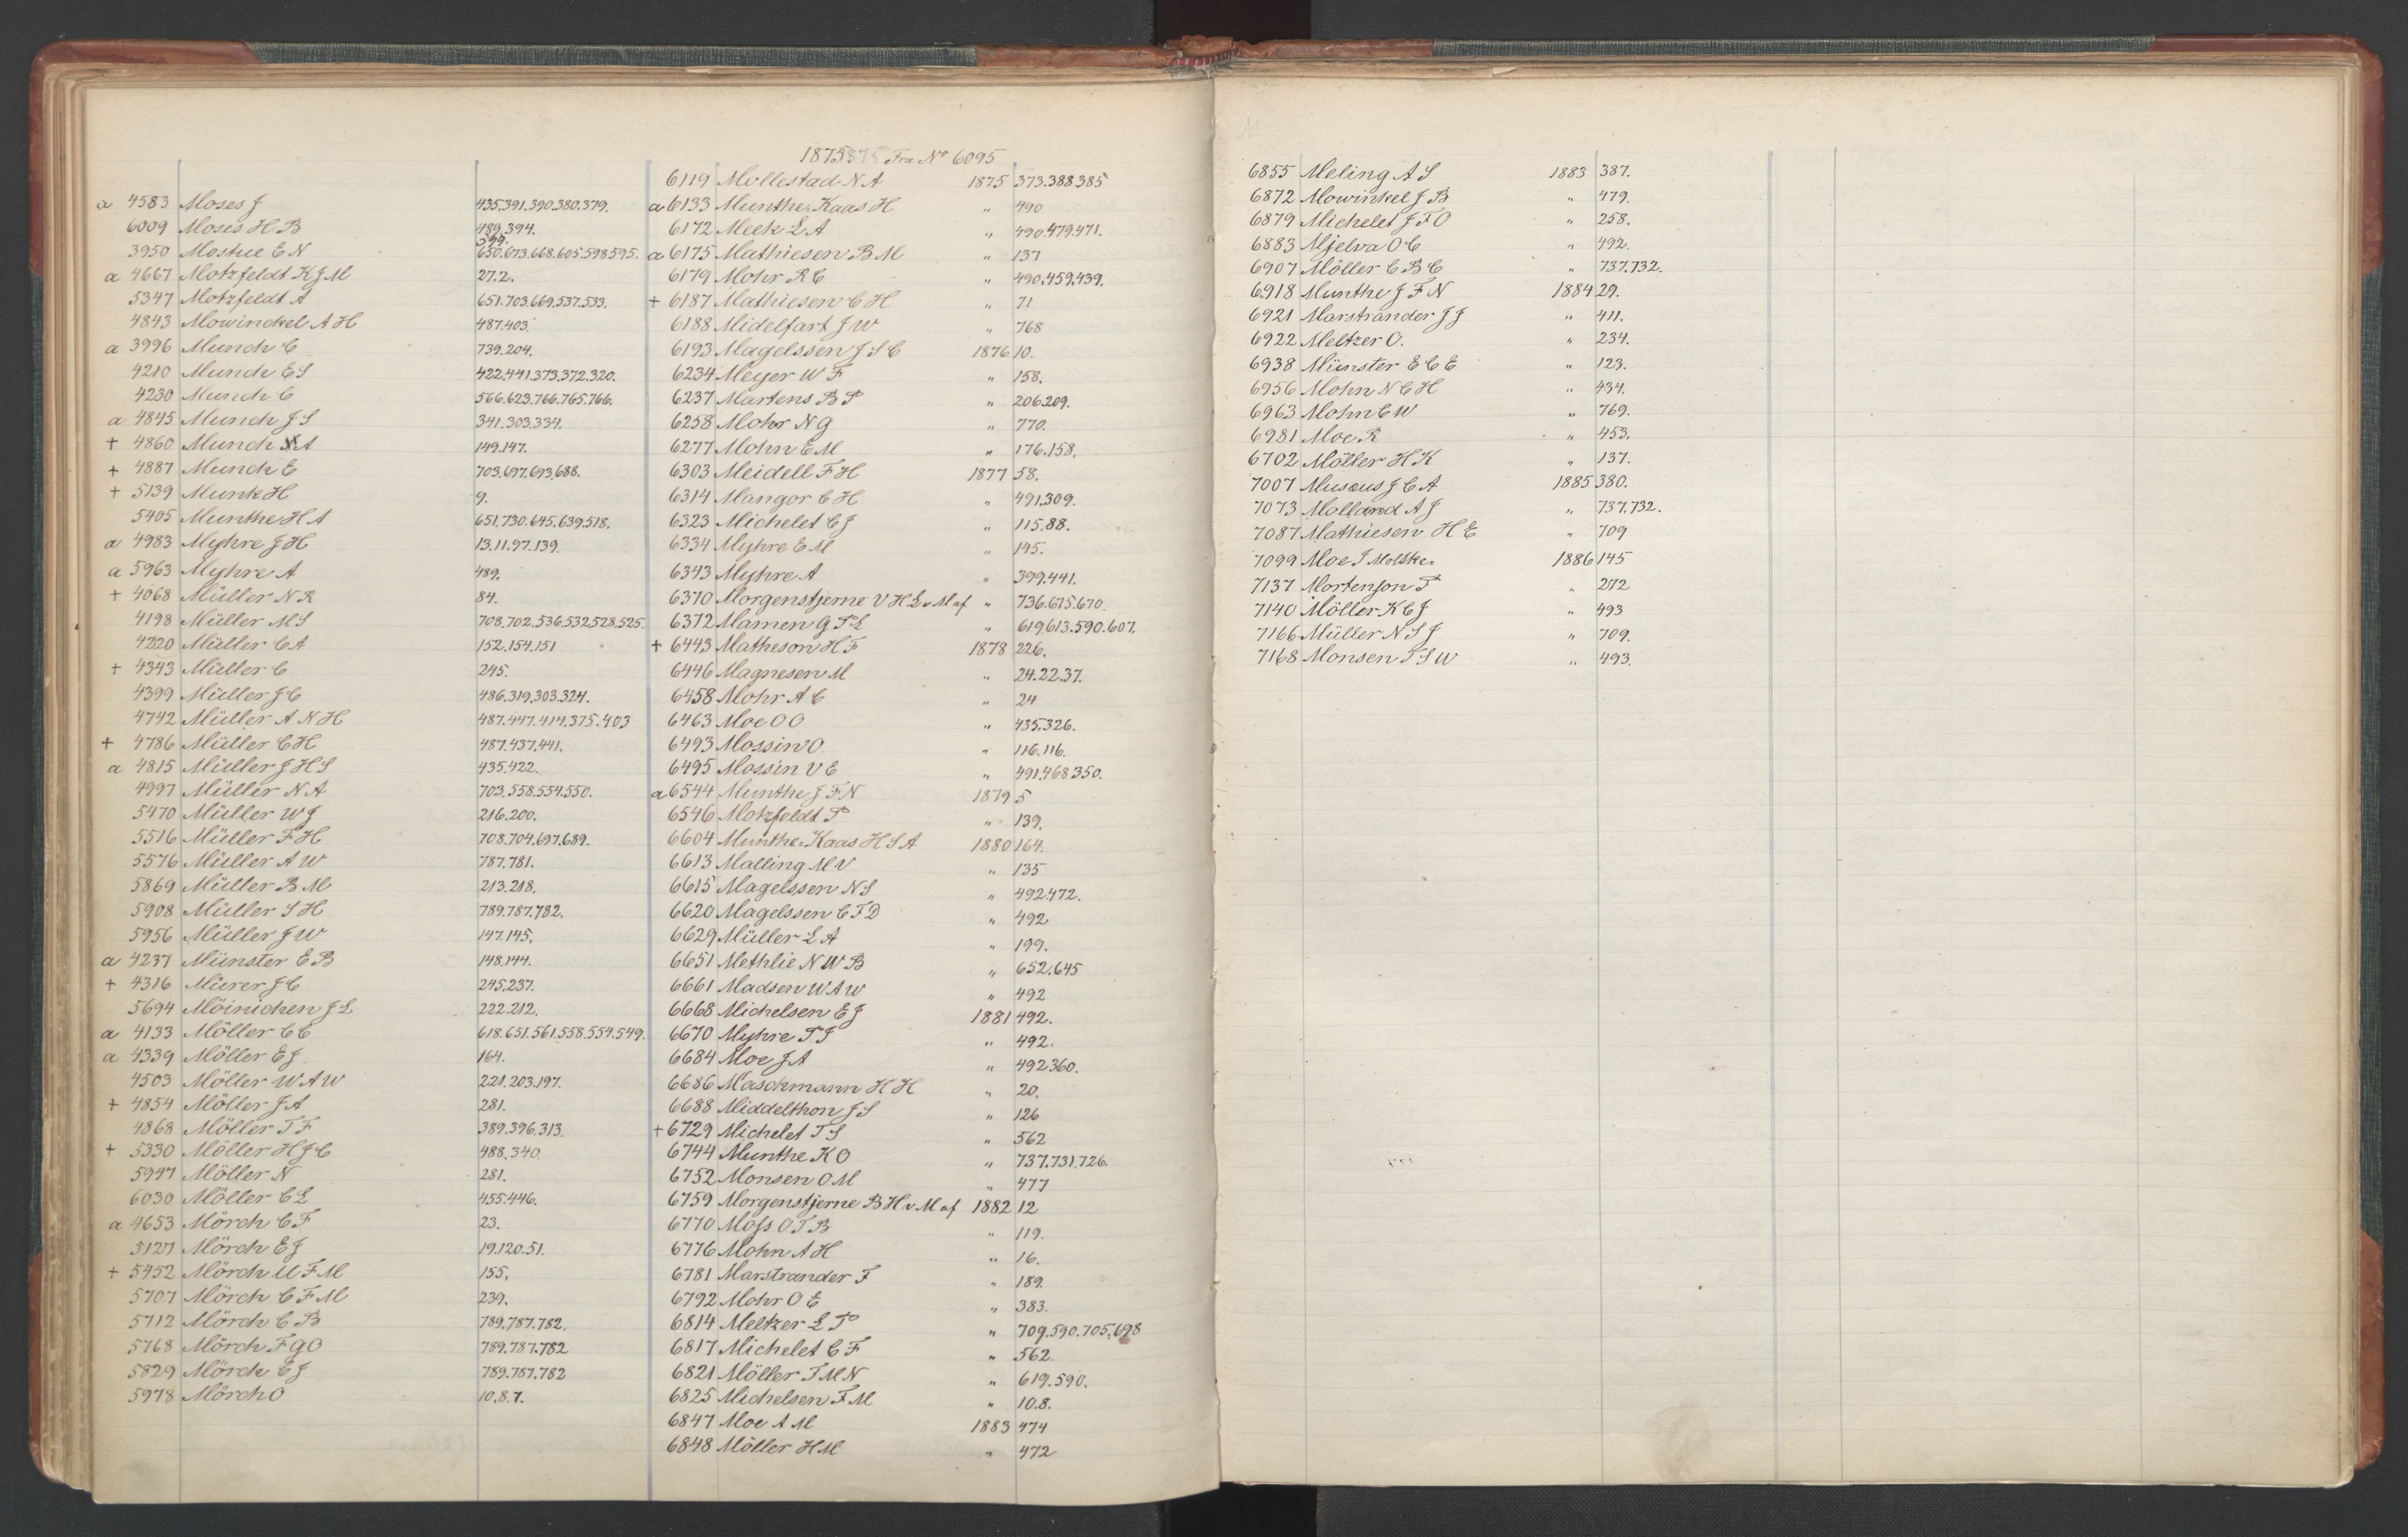 a 4583 Moses J 435.391.390.380.379.
6009 Moses H B 489.394.
599.
3950 Mostue E N 650.673.668.605.598.595.
a 4667 Motzfeldt K J M 27.2.
5347 Motzfeldt A 651.703.669.537.533.
4843 Mowinckel A H 487.403.
a 3996 Munch C 739.204.
4210 Munch E S 422.441.373.372.320.
4230 Munch C 566.623.766.765.766.
a 4845 Munch J S 341.303.334.
+ 4860 Munch A 149.147.
+ 4887 Munch E 703.697.693.688.
+ 5139 Munk H 9.
5405 Munthe H A 651.730.645.639.518.
a 4983 Myhre J H 13.11.97.139.
a 5963 Myhre A 489.
+ 4068 Müller N R 84.
4198 Müller M S 708.702.536.532.528.525.
4220 Müller C A 152.154.151
+ 4343 Müller C 245.
4399 Müller J C 486.319.303.324.
4742 Müller A N H 487.447.414.375.403
+ 4786 Müller C H 487.437.441.
a 4815 Müller J H S 435.422.
4997 Müller N A 703.558.554.550.
5470 Müller W J 216.200.
5516 Müller F H 708.704.697.689.
5576 Müller A W 787.781.
5869 Müller B M 213.218.
5908 Müller S H 789.787.782.
5956 Müller J W 147.145.
a 4237 Münster E B 148.144.
+ 4316 Mürer J C 245.237.
5694 Möinichen J L 222.212.
a 4133 Möller C C 618.651.561.558.554.549.
a 4339 Möller E J 164.
4503 Möller W A W 221.203.197.
+ 4854 Möller J A 281.
4868 Möller T F 389.396.313.
+ 5330 Möller H J C 488.340.
5947 Möller N 281.
6030 Möller C L 455.446.
a 4653 Mörch C F 23.
5127 Mörch E J 19.120.51.
+ 5452 Mörch U F M 155.
5707 Mörch C F M 239.
5712 Mörch C B 789.787.782.
5768 Mörch F G O 789.787.782
5829 Mörch C J 789.787.782
5978 Mörch O 10.8.7.
1875 Fra No 6095
6119 Mollestad N A 1875 373.388.385
a 6133 Munthe-Kaas H " 490
6172 Meek L A " 490.479.471.
a 6175 Mathiesen B M " 137
6179 Mohr R C " 490.459.439.
+ 6187 Mathiesen C H " 71
6188 Midelfart J W " 768
6193 Magelssen J S C 1876 10.
6234 Meyer W F " 158.
6237 Martens B P " 206.209.
6258 Mohr N G " 770.
6277 Mohn E M " 176.158.
6303 Meidell F H 1877 58.
6314 Mangor C H " 491.309.
6323 Michelet C J " 115.88.
6334 Myhre E M " 145.
6343 Myhre A " 399.441.
6370 Morgenstjerne V H L v M af " 736.675.670.
6372 Mamen G P L " 619.613.590.607.
+ 6443 Matheson H F 1878 226.
6446 Magnesen M " 24.22.37.
6458 Mohr A C " 24
6463 Moe O O " 435.326.
6493 Mossin O. " 116.116.
6495 Mossin V E " 491.468.350.
a 6544 Munthe J F N 1879 5
6546 Motzfeldt P " 139.
6604 Munthe-Kaas H S A 1880 164.
6613 Malling M V " 135
6615 Magelssen N S " 492.472.
6620 Magelssen C F D " 492
6629 Müller L A " 199.
6651 Methlie N W B " 652.645
6661 Madsen W A W " 492
6668 Michelsen E J 1881 492.
6670 Myhre P J " 492.
6684 Moe J A " 492.360.
6686 Maschmann H H " 20.
6688 Middelthon J S " 126
+ 6729 Michelet T S " 562
6744 Munthe K O " 737.731.726.
6752 Monsen O M " 477
6759 Morgenstjerne B H v M af 1882 12
6770 Moss O T B " 119.
6776 Mohn A H " 16.
6781 Marstrander F " 189.
6792 Mohr O E " 383.
6814 Meltzer L P " 709.590.705.698
6817 Michelet C F " 562.
6821 Möller T M N " 619.590.
6825 Michelsen F M " 10.8.
6847 Moe A M 1883 474
6848 Möller H M " 472
6855 Meling A S 1883 387.
6872 Mowinkel J B " 479.
6879 Michelet J F O " 258.
6883 Mjelva O C " 492.
6907 Möller C B C " 737.732.
6918 Munthe J F N 1884 29.
6921 Marstrander J J " 411.
6922 Meltzer O. " 234.
6938 Münster E C E " 123.
6956 Mohn N C H " 434.
6963 Mohn C W " 769.
6981 Moe R " 453.
6702 Möller H K " 137.
7007 Musæus J C A 1885 380.
7073 Molland A J " 737.732.
7087 Mathiesen H E " 709
7099 Moe I Moltke- 1886 145
7137 Mortenson P " 272
7140 Möller K C J " 493
7166 Müller N S J " 709.
7168 Monsen T S W " 493.